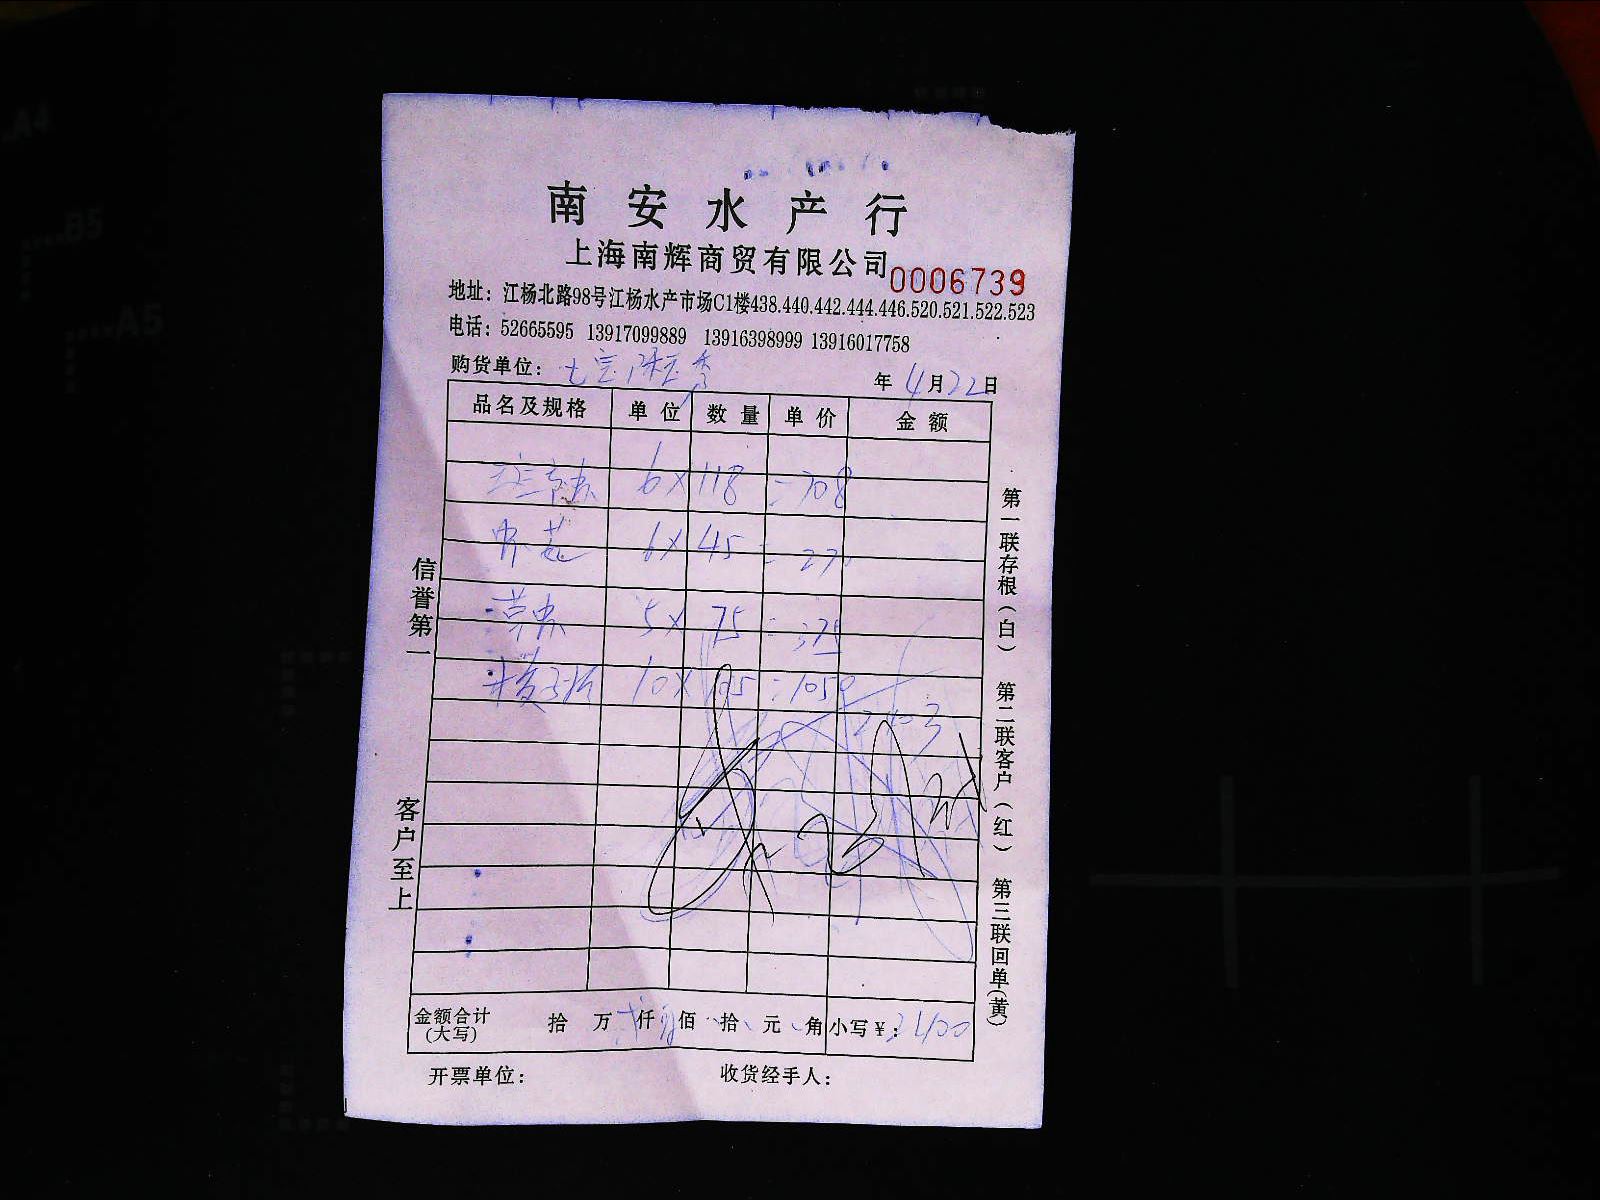 南安水产行
上海南辉商贸有限公司 0006739
地址：江杨北路98号江杨水产市场C1楼438.440.442.444.446.520.521.522.523
电话：52665595 13917099889 13916398999 13916017758
购货单位： 年 4月22日
品名及规格 单位 数量 单价 金额
6×118=708
6×45=27
5×75=375
10×105=1050
2403
金额合计(大写) 拾 万 仟 佰 拾 元 角 小写¥：2400
开票单位： 收货经手人：
信誉第一
客户至上
第一联存根（白） 第二联客户（红） 第三联回单(黄)
A4
B5
A5